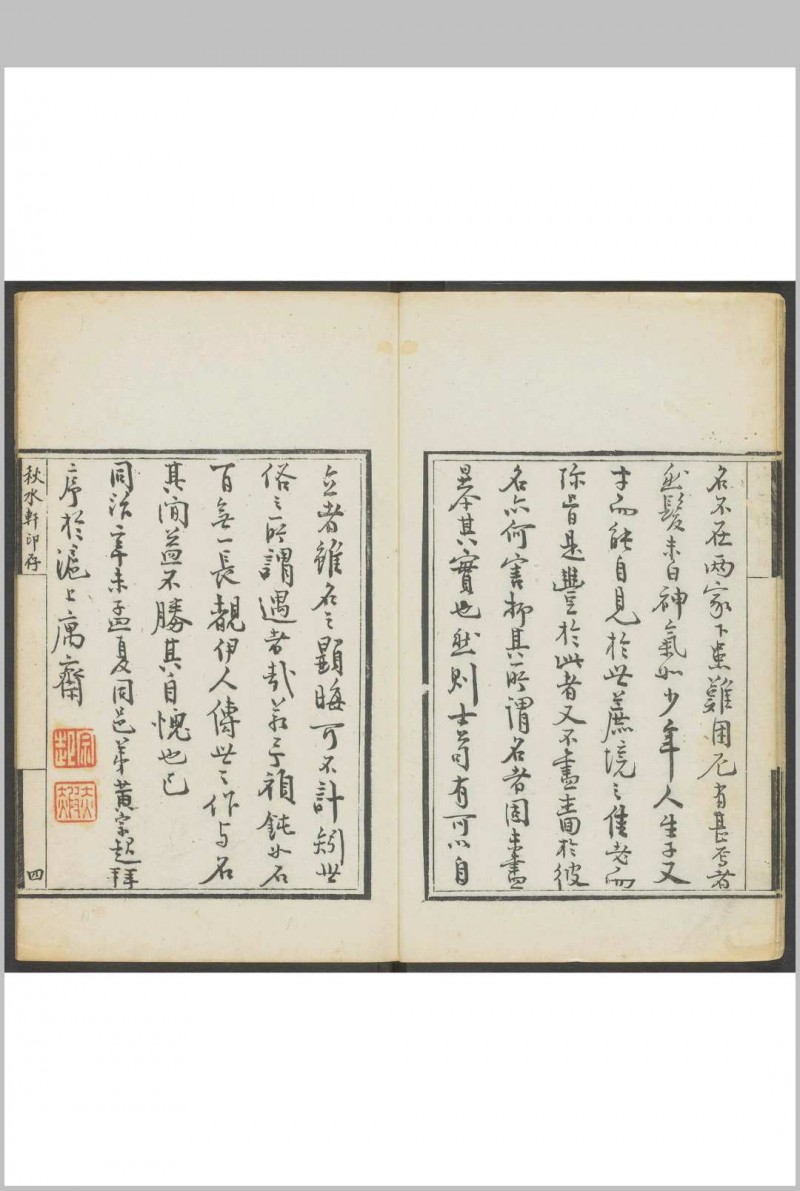 名不在兩家下患難困戹有甚焉者
然髮未白神氣如少年人生子又
才而能自見於世蔗境之佳老而
弥旨是豐於此者又不盡嗇於彼
名亦何害抑其所謂名者固未盡
暴其實也然則士苟有可以自
立者雖名之顯晦可不計矧世
俗之所謂遇者哉若予頑鈍如石
百無一長覩伊人傳世之作與石
其閒益不勝其自愧也已
同治辛未孟夏同邑弟黃宗起拜
序於滬上寓齋
宗起
秋水軒印存
四